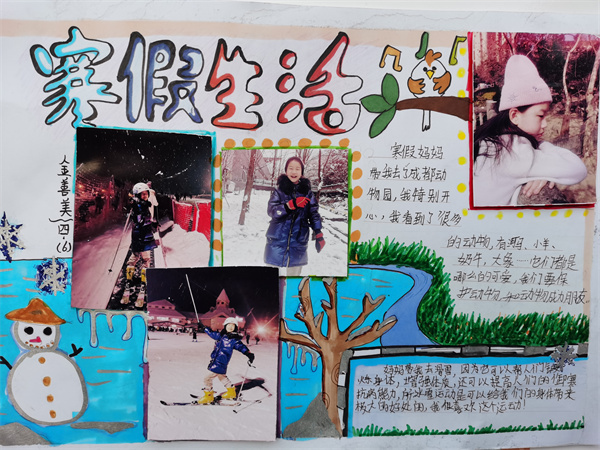 寒假生活
金善美 四(6)
寒假妈妈
带我去了成都动
物园,我特别开
心,我看到了很多
的动物,有
奶牛、大象……它们都是
那么的可爱,我们要保
护动物,和动物成为朋友。
妈妈带我去滑雪,因为它可以
炼身体,增强体质,还可以提高人们的御寒
抗病能力,所以
大的好处的,我很喜欢这个运动!